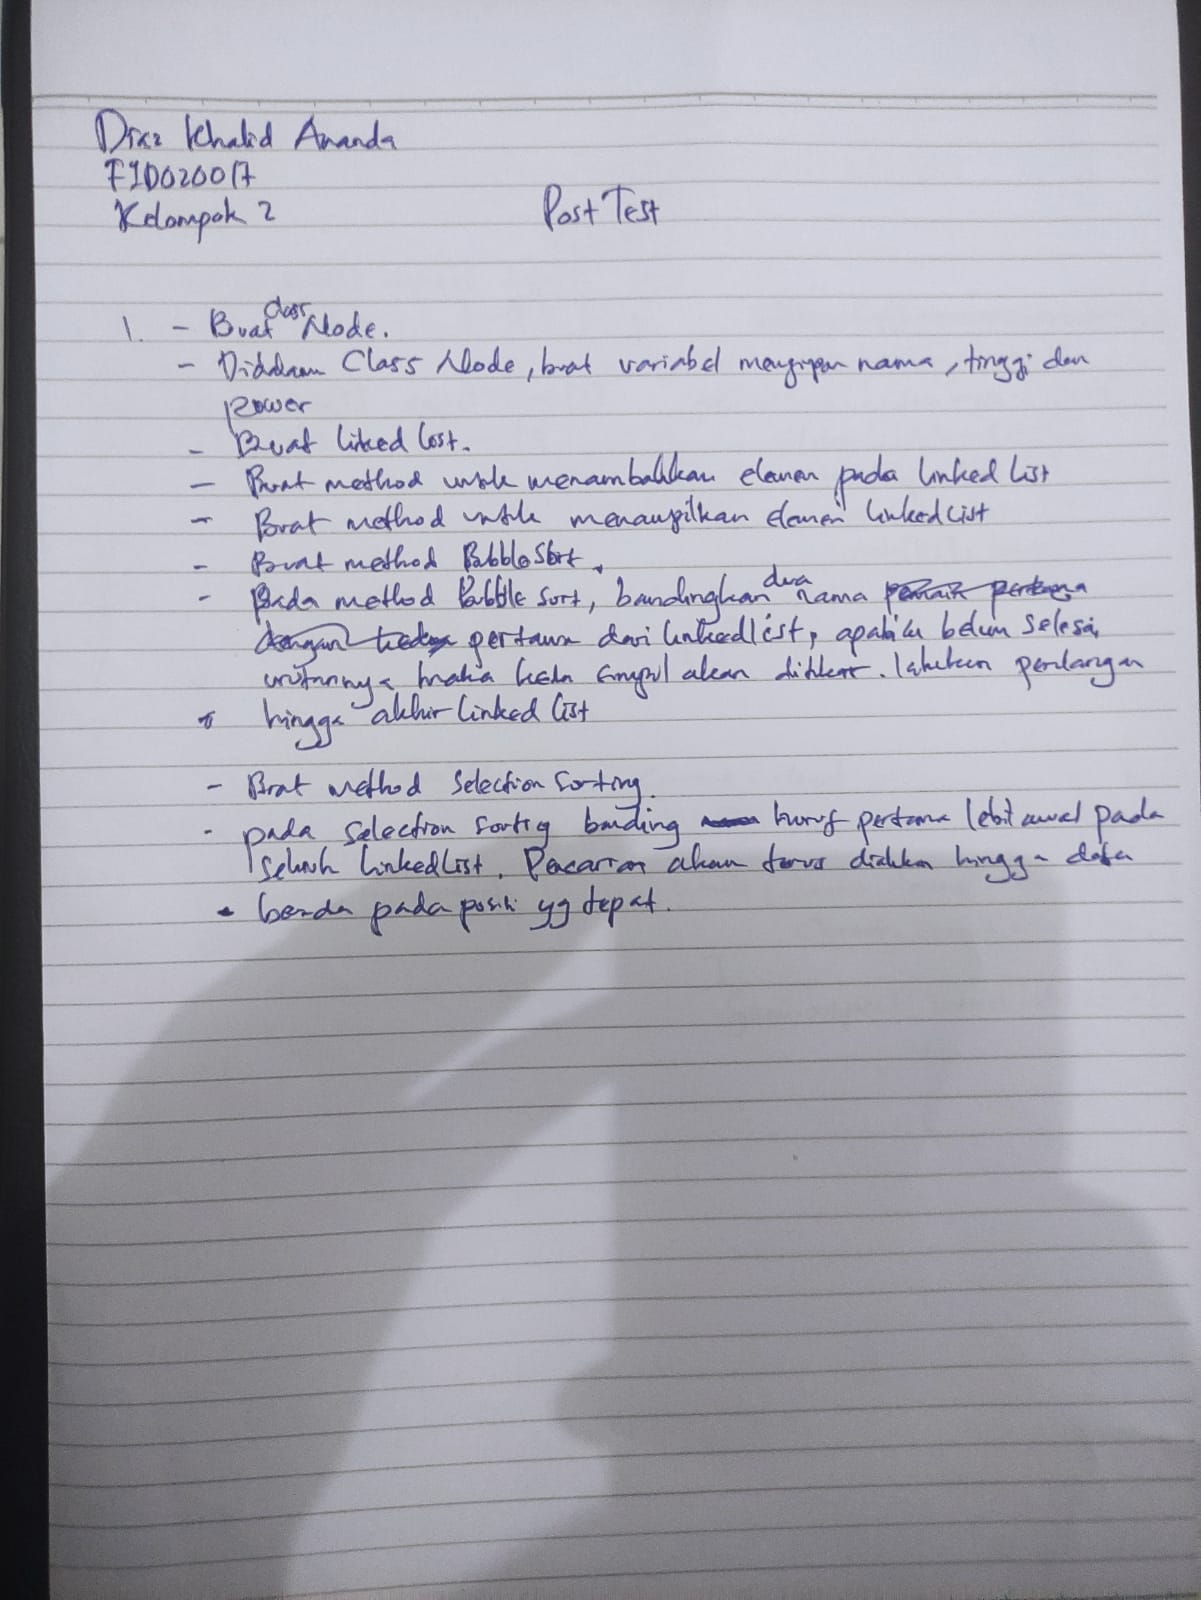 Diaz Khalid Ananda
F1D020017
Kelompok 2
Post Test
1. - Buat class Node.
- Didalam Class Node, buat variabel menyimpan nama, tinggi dan
power
- Buat linked list.
- Buat method untuk menambahkan elemen pada linked list
- Buat method untuk menampilkan elemen linked list
- Buat method Bubble Sort.
- Pada method Bubble Sort, bandingkan dua nama
pertama dari linked list, apabila belum selesai
urutannya maka kedua simpul akan ditukar. lakukan perulangan
hingga akhir linked list
- Buat method Selection Sorting.
- pada Selection Sorting banding huruf pertama lebih awal pada
seluruh linked list. Pencarian akan terus hingga data
berada pada posisi yg tepat.